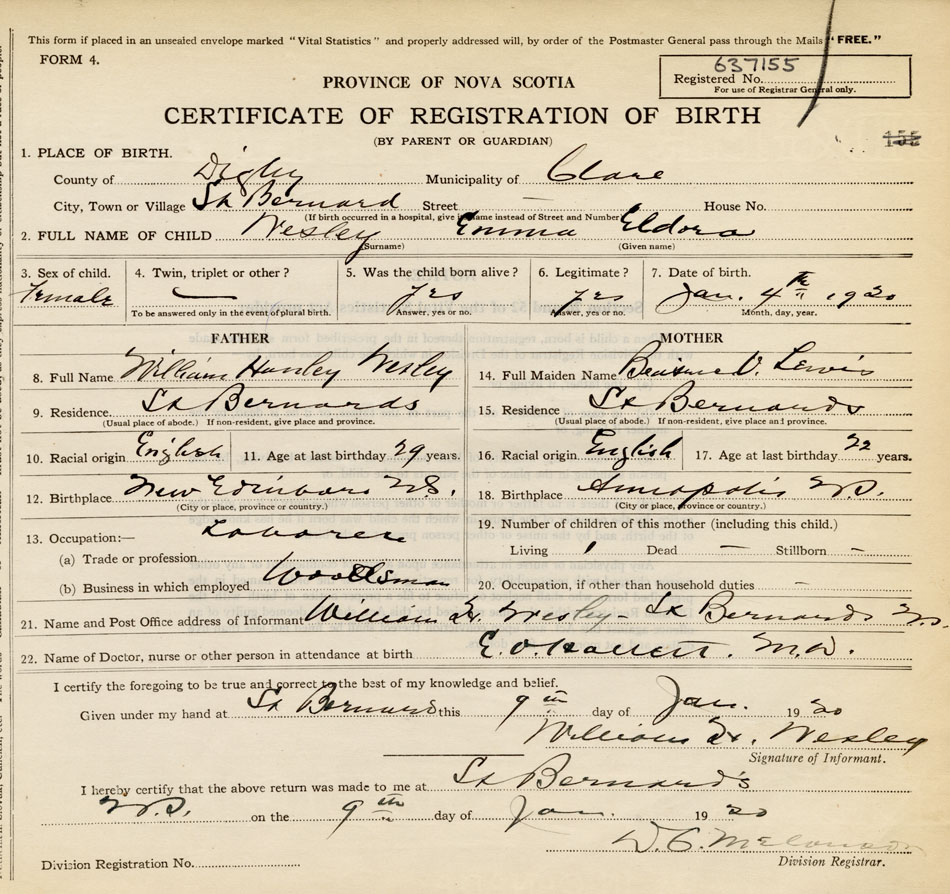 This form if placed in an unsealed envelope marked "Vital Statistics" and properly addressed will, by order of the Postmaster General pass through the Mails "FREE."
FORM 4.
637155
Registered No.
For use of Registrar General only.
PROVINCE OF NOVA SCOTIA
CERTIFICATE OF REGISTRATION OF BIRTH
(BY PARENT OR GUARDIAN)
155
1. PLACE OF BIRTH.
County of Digby Municipality of Clare
City, Town or Village St Bernard Street — House No.
(If birth occurred in a hospital, give its name instead of Street and Number)
2. FULL NAME OF CHILD Wesley Emma Eldora
(Surname) (Given name)
3. Sex of child. 4. Twin, triplet or other? 5. Was the child born alive? 6. Legitimate? 7. Date of birth.
Female — yes yes Jan. 4th 1920
To be answered only in the event of plural birth. Answer, yes or no. Answer, yes or no. Month, day, year.
FATHER MOTHER
8. Full Name William Wesley 14. Full Maiden Name V. Lewis
9. Residence. St Bernards 15. Residence St Bernards
(Usual place of abode.) If non-resident, give place and province. (Usual place of abode.) If non-resident, give place and province.
10. Racial origin English 11. Age at last birthday 29 years. 16. Racial origin English 17. Age at last birthday 22 years.
12. Birthplace New Edinboro N.S. 18. Birthplace Annapolis N.S.
(City or place, province or country.) (City or place, province or country.)
13. Occupation:— Laborer 19. Number of children of this mother (including this child.)
(a) Trade or profession Living 1 Dead — Stillborn —
(b) Business in which employed Woodsman 20. Occupation, if other than household duties —
21. Name and Post Office address of Informant William H. Wesley - St Bernards N.S.
22. Name of Doctor, nurse or other person in attendance at birth E. O. Hallett. M.D.
I certify the foregoing to be true and correct to the best of my knowledge and belief.
Given under my hand at St Bernard this 9th day of Jan. 1920
William H. Wesley
Signature of Informant.
I hereby certify that the above return was made to me at St Bernard's
N.S. on the 9th day of Jan. 1920
D. C.
Division Registration No. Division Registrar.